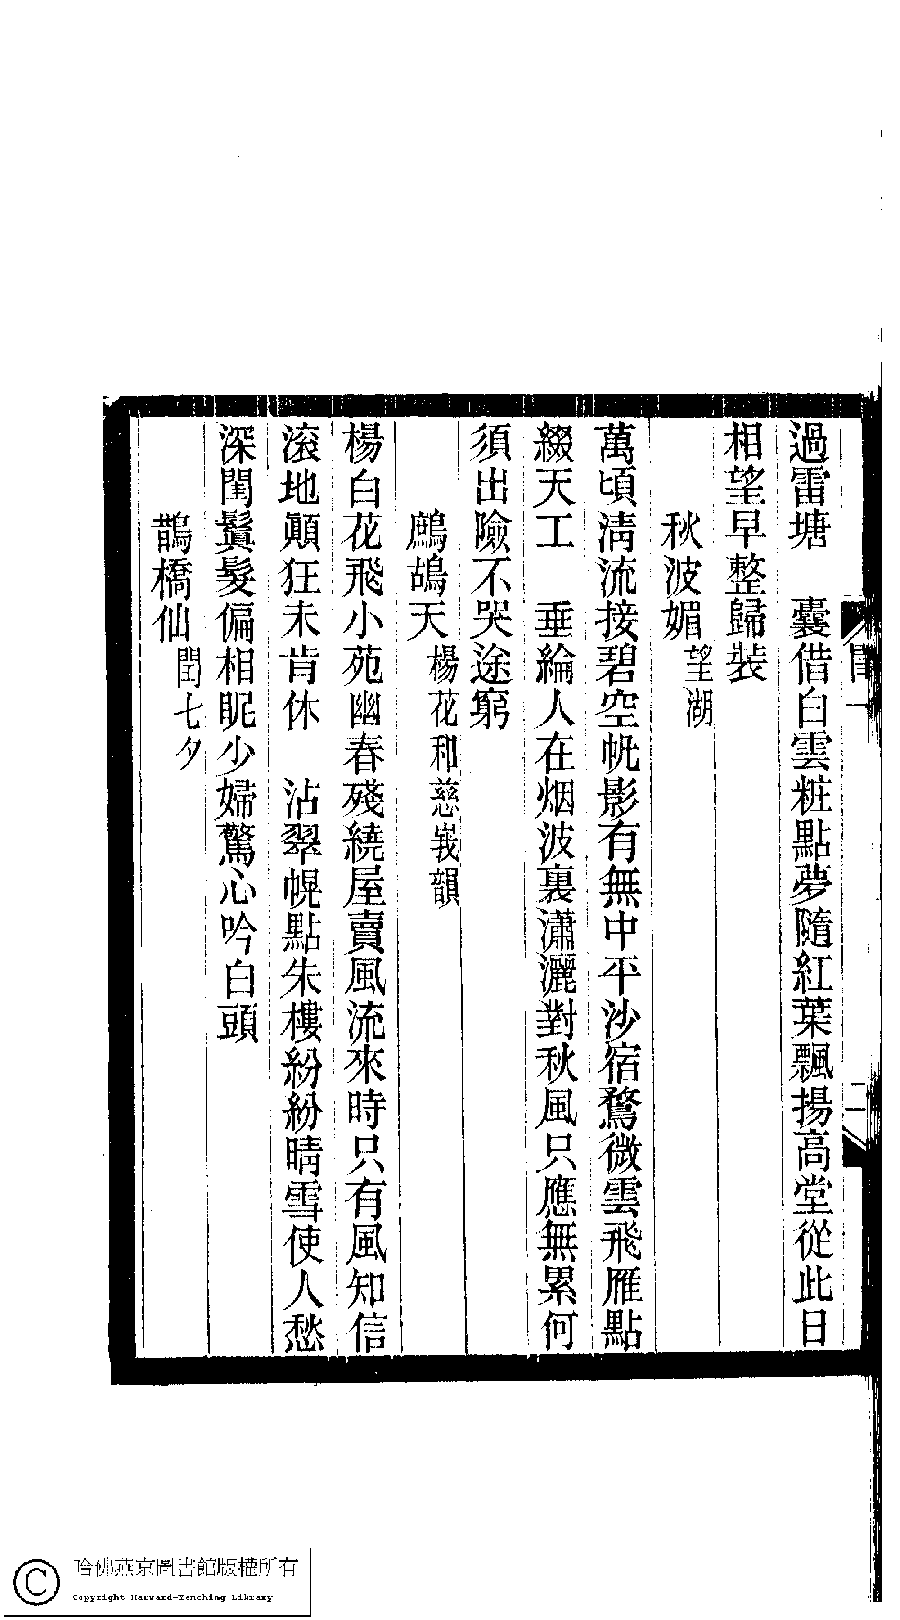 過雷塘　囊借白雲粧點夢隨紅葉飄揚高堂從此日
相望早整歸裝
秋波媚望湖
萬頃淸流接碧空帆影有無中平沙宿鶩微雲飛雁點
綴天工　垂綸人在烟波裏瀟灑對秋風只應無累何
須出險不哭途窮
鷓鴣天楊花和慈峩韻
楊白花飛小苑幽春殘繞屋賣風流來時只有風知信
滚地顚狂未肯休　沾翠幌點朱樓紛紛晴雪使人愁
深閨鬢髮偏相眤少婦驚心吟白頭
鵲橋仙閏七夕
哈佛燕京圖書館版權所有
Copyright Harvard-Yenching Library